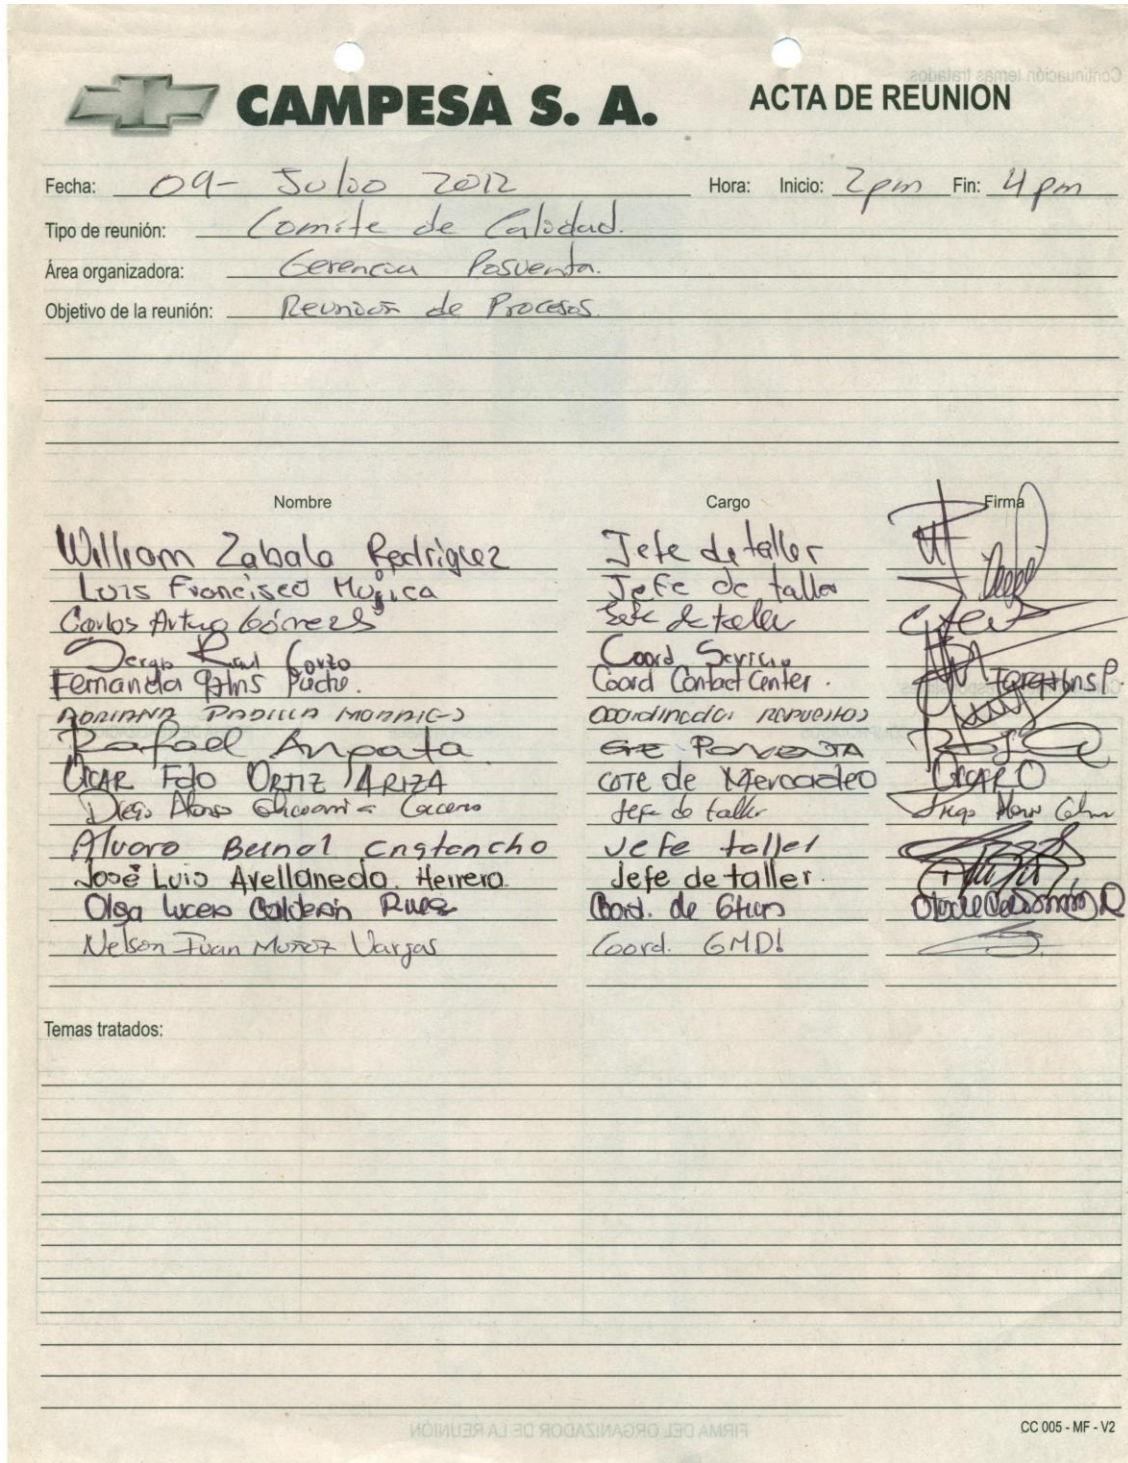 CAMPESA S. A. ACTA DE REUNION
Fecha: 09- Julio 2012 Hora: Inicio: 2pm Fin: 4 pm
Tipo de reunión: Comite de Calidad.
Área organizadora: Gerencia Posventa.
Objetivo de la reunión: Reunion de Procesos.
Nombre Cargo Firma
William Zabala Rodriguez Jefe de taller
Luis Francisco Mujica Jefe de taller
Carlos Arturo Jefe de taller
Sergio Raul Corzo Coord Servicio
Fernanda Puche. Coord Contact Center.
ADRIANA PADILLA Coordinador repuestos
Rafael
OSCAR Fdo ORTIZ ARIZA de Mercadeo OSCAR O
Diego Alonso Jefe de taller Diego Alonso
Alvaro Bernal Jefe taller
José Luis Avellaneda Herrera Jefe de taller.
Olga Lucero Calderón Coord. de
Nelson Ivan Muñoz Vargas Coord. GMDI
Temas tratados:
CC 005 - MF - V2